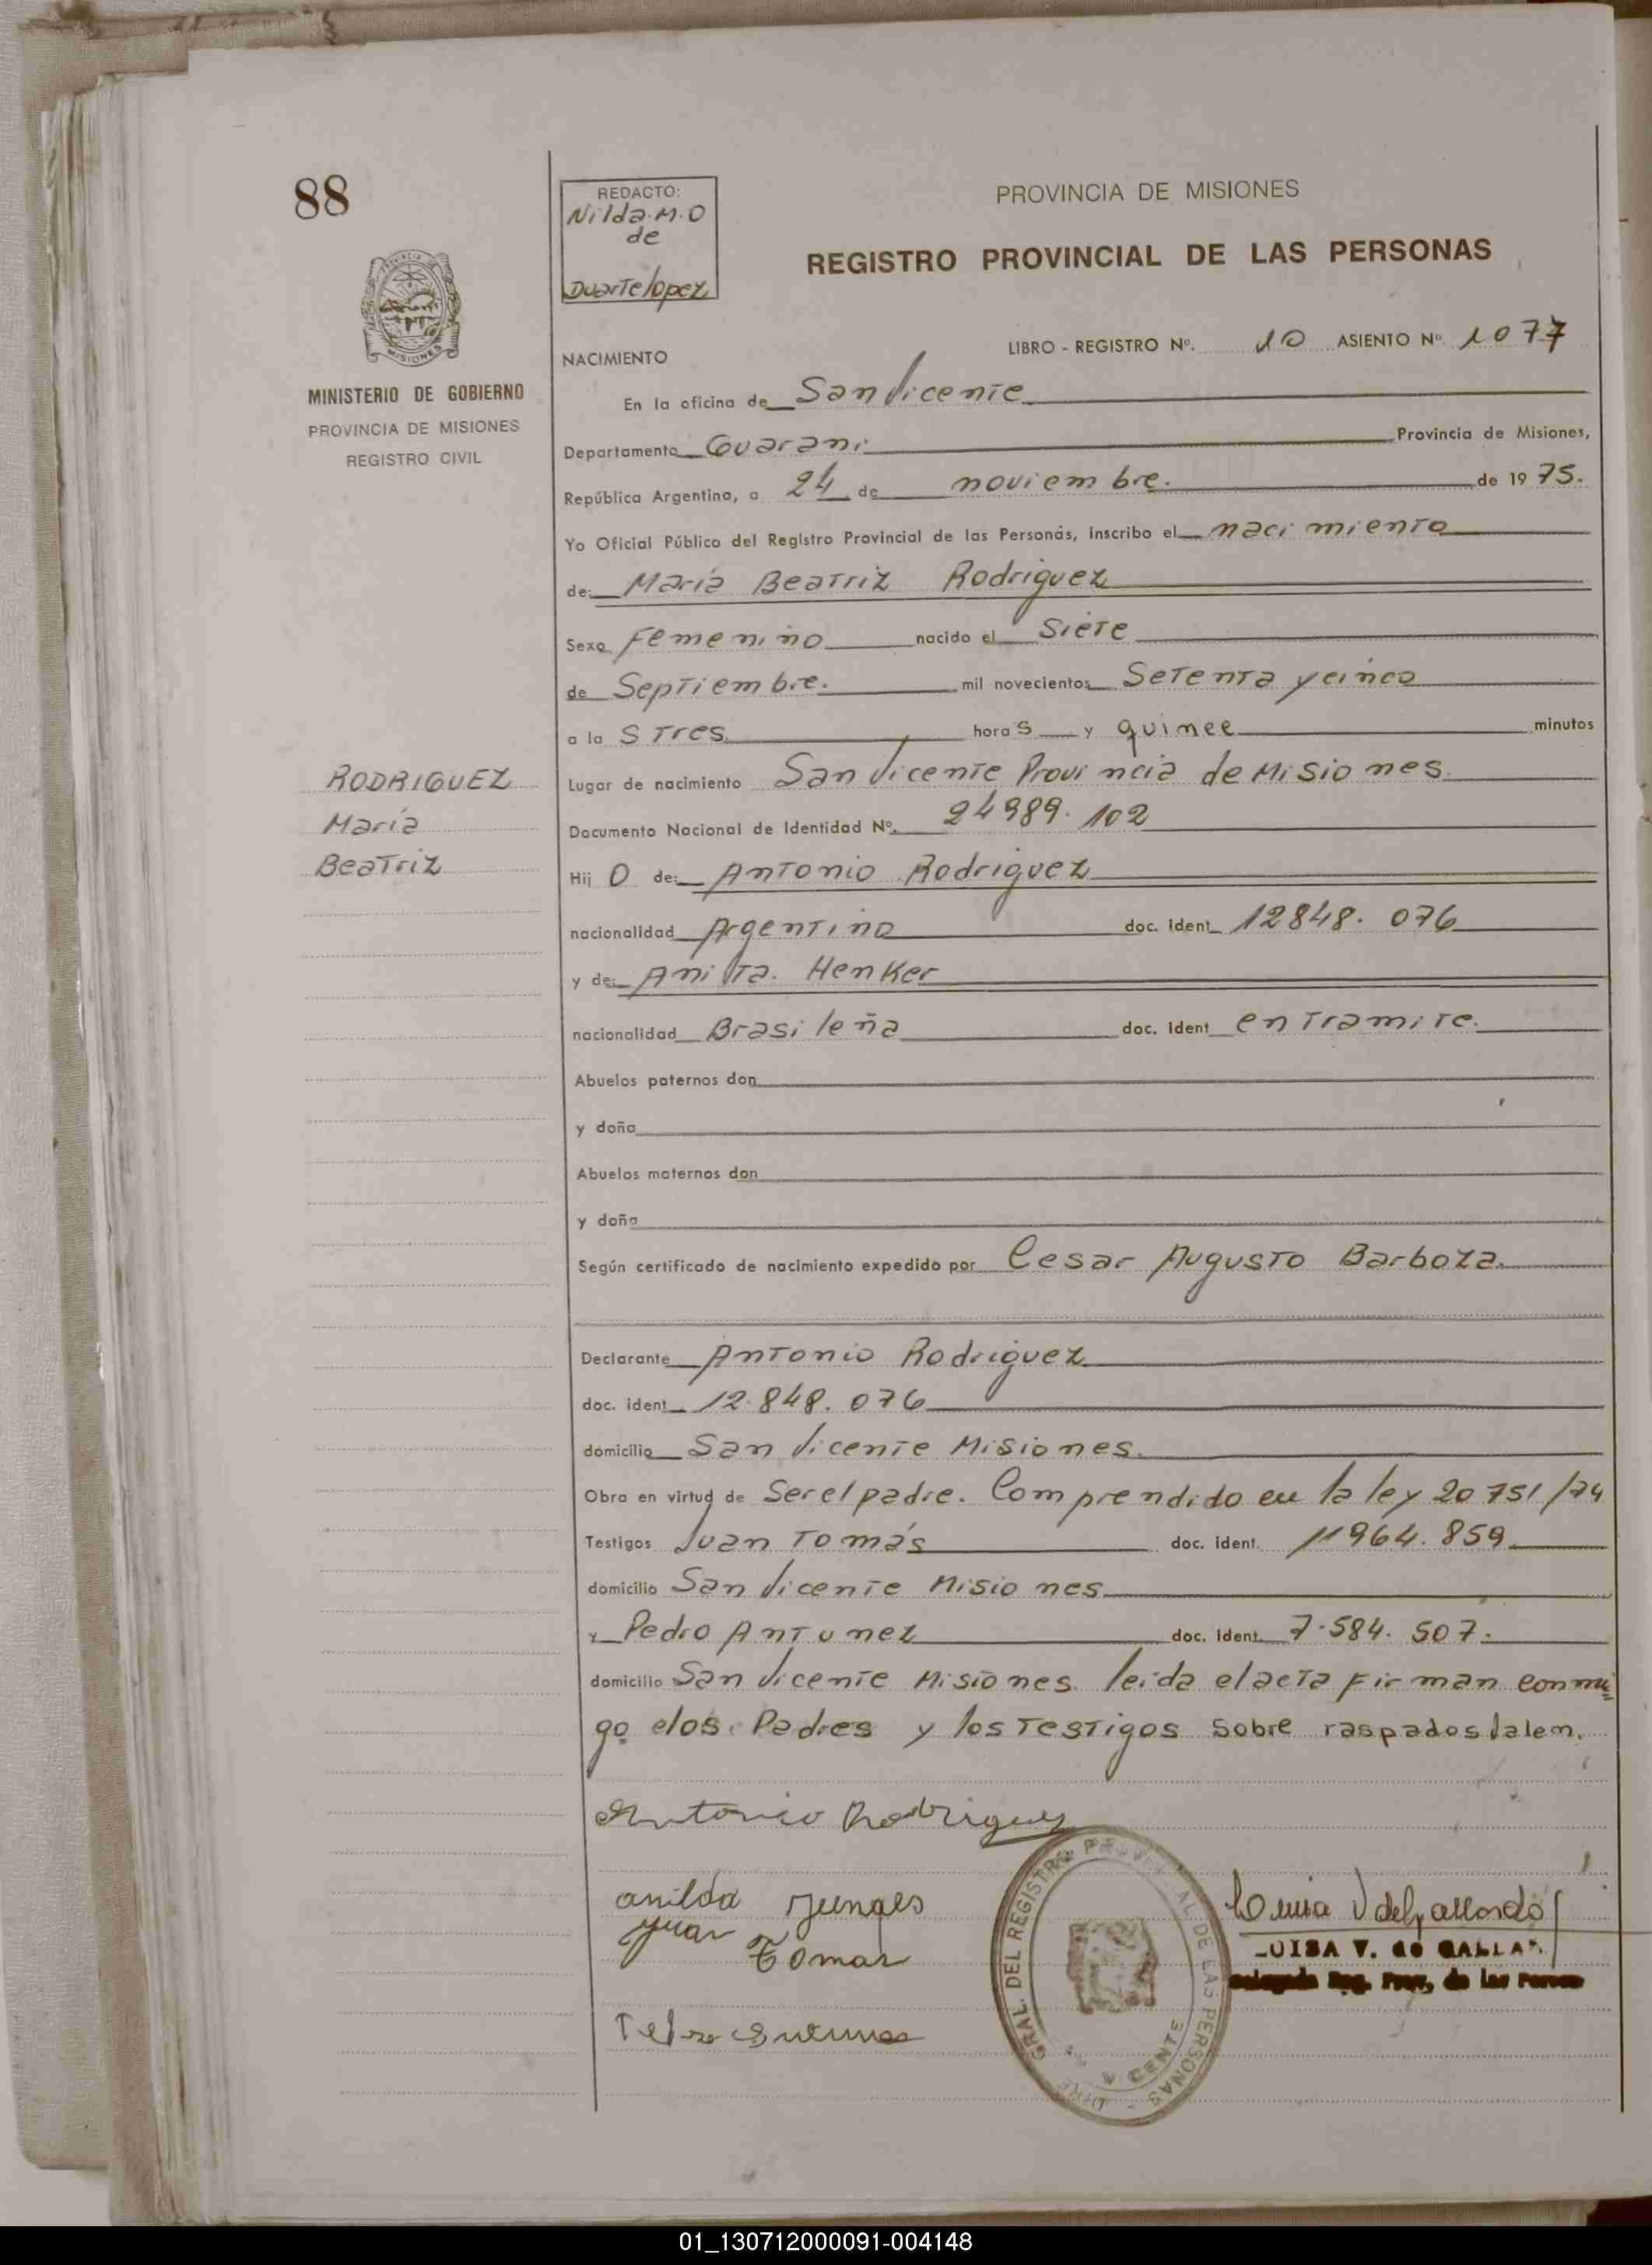 88
REDACTO:
Nilda.M.O
de
Duarte lopez
PROVINCIA DE MISIONES
REGISTRO PROVINCIAL DE LAS PERSONAS
PROVINCIA DE
MISIONES
MINISTERIO DE GOBIERNO
PROVINCIA DE MISIONES
REGISTRO CIVIL
LIBRO - REGISTRO Nº. 10 ASIENTO Nº. 1077
NACIMIENTO
En la oficina de San Vicente
Departamento Guarani Provincia de Misiones,
República Argentina, a 24 de noviembre. de 1975.
Yo Oficial Público del Registro Provincial de las Personas, inscribo el nacimiento
de: María Beatriz Rodriguez
Sexo Femenino nacido el Siete
de Septiembre. mil novecientos Setenta y cinco
a las Tres horas y quince minutos
Lugar de nacimiento San Vicente Provincia de Misiones.
Documento Nacional de Identidad Nº. 24989.102
RODRIGUEZ
María
Beatriz
Hij O de: Antonio Rodriguez
nacionalidad Argentino doc. ident 12848.076
y de: Henker
nacionalidad Brasileña doc. ident en Tramite.
Abuelos paternos don
y doña
Abuelos maternos don
y doña
Según certificado de nacimiento expedido por Cesar Augusto Barboza.
Declarante Antonio Rodriguez
doc. ident 12.848.076
domicilio San Vicente Misiones.
Obra en virtud de Ser el padre. Comprendido en la ley 20751/74
Testigos Juan Tomás doc. ident. 11964.859
domicilio San Vicente Misiones
y Pedro Antunez doc. ident. 7.584.507.
domicilio San Vicente Misiones leida el acta Firman conmi=
go elos Padres y los Testigos Sobre raspados Valem.
Antonio Rodriguez
anilda Junges
Juan Tomas
GRAL. DEL REGISTRO DE LAS PERSONAS
LUISA V. de
Reg. Prov. de las
01_130712000091-004148